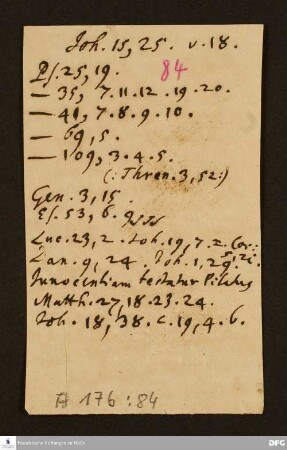 Joh. 15, 25. v. 18.
Ps. 25, 19. 84
— 35, 7. 11. 12. 19. 20.
— 41, 7. 8. 9. 10.
— 69, 5.
— 109, 3. 4. 5.
(: Thren. 3, 52:)
Gen. 3, 15.
Es. 53, 6. 9
Luc. 23, 2. Joh. 19, 7. 2. Cor:
Dan. 9, 24. Joh. 1, 29. 5. 21.
Innocentiam testatur Pilatus
Matth. 27, 18. 23. 24.
Joh. 18, 38. c. 19, 4. 6.
A 176 : 84
Franckesche Stiftungen zu Halle
DFG